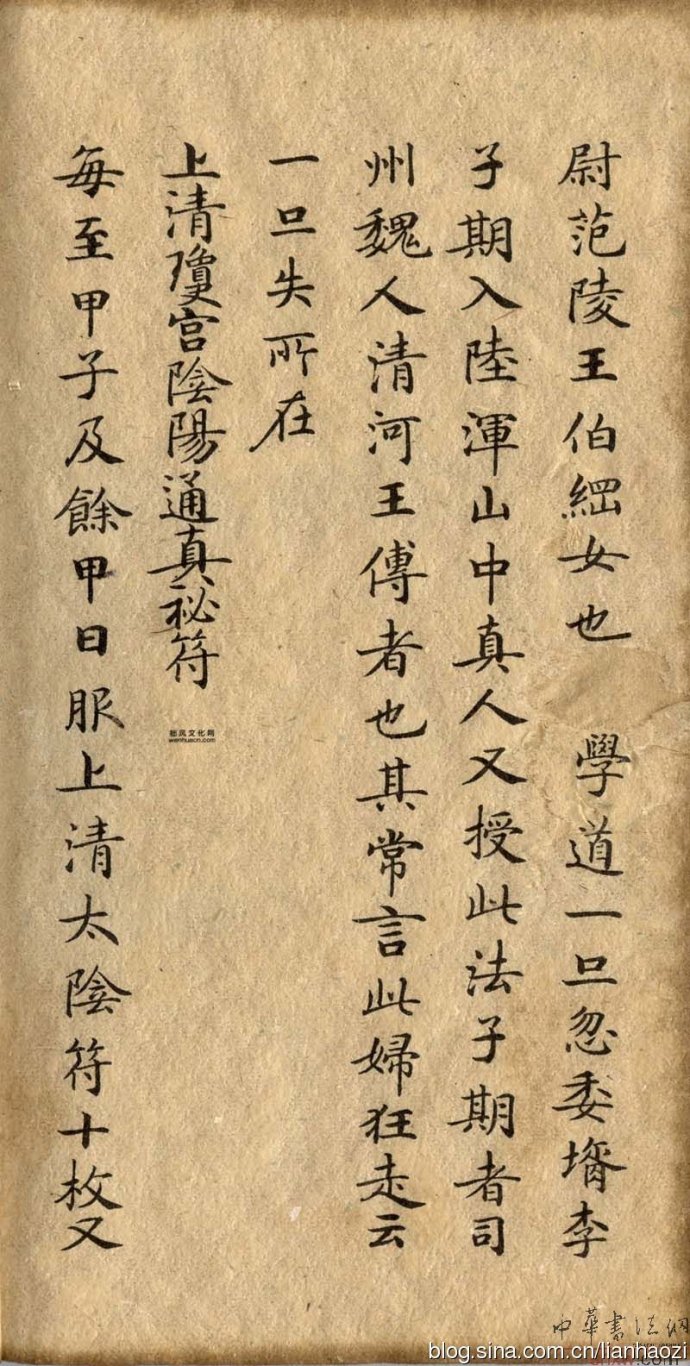 尉范陵王伯綱女也 學道一旦忽委壻李
子期入陸渾山中真人又授此法子期者司
州魏人清河王傅者也其常言此婦狂走云
一旦失所在
上清瓊宮陰陽通真祕符
每至甲子及餘甲日服上清太陰符十枚又
拙风文化网
wenhuacn.com
中華書法網
blog.sina.com.cn/lianhaozi